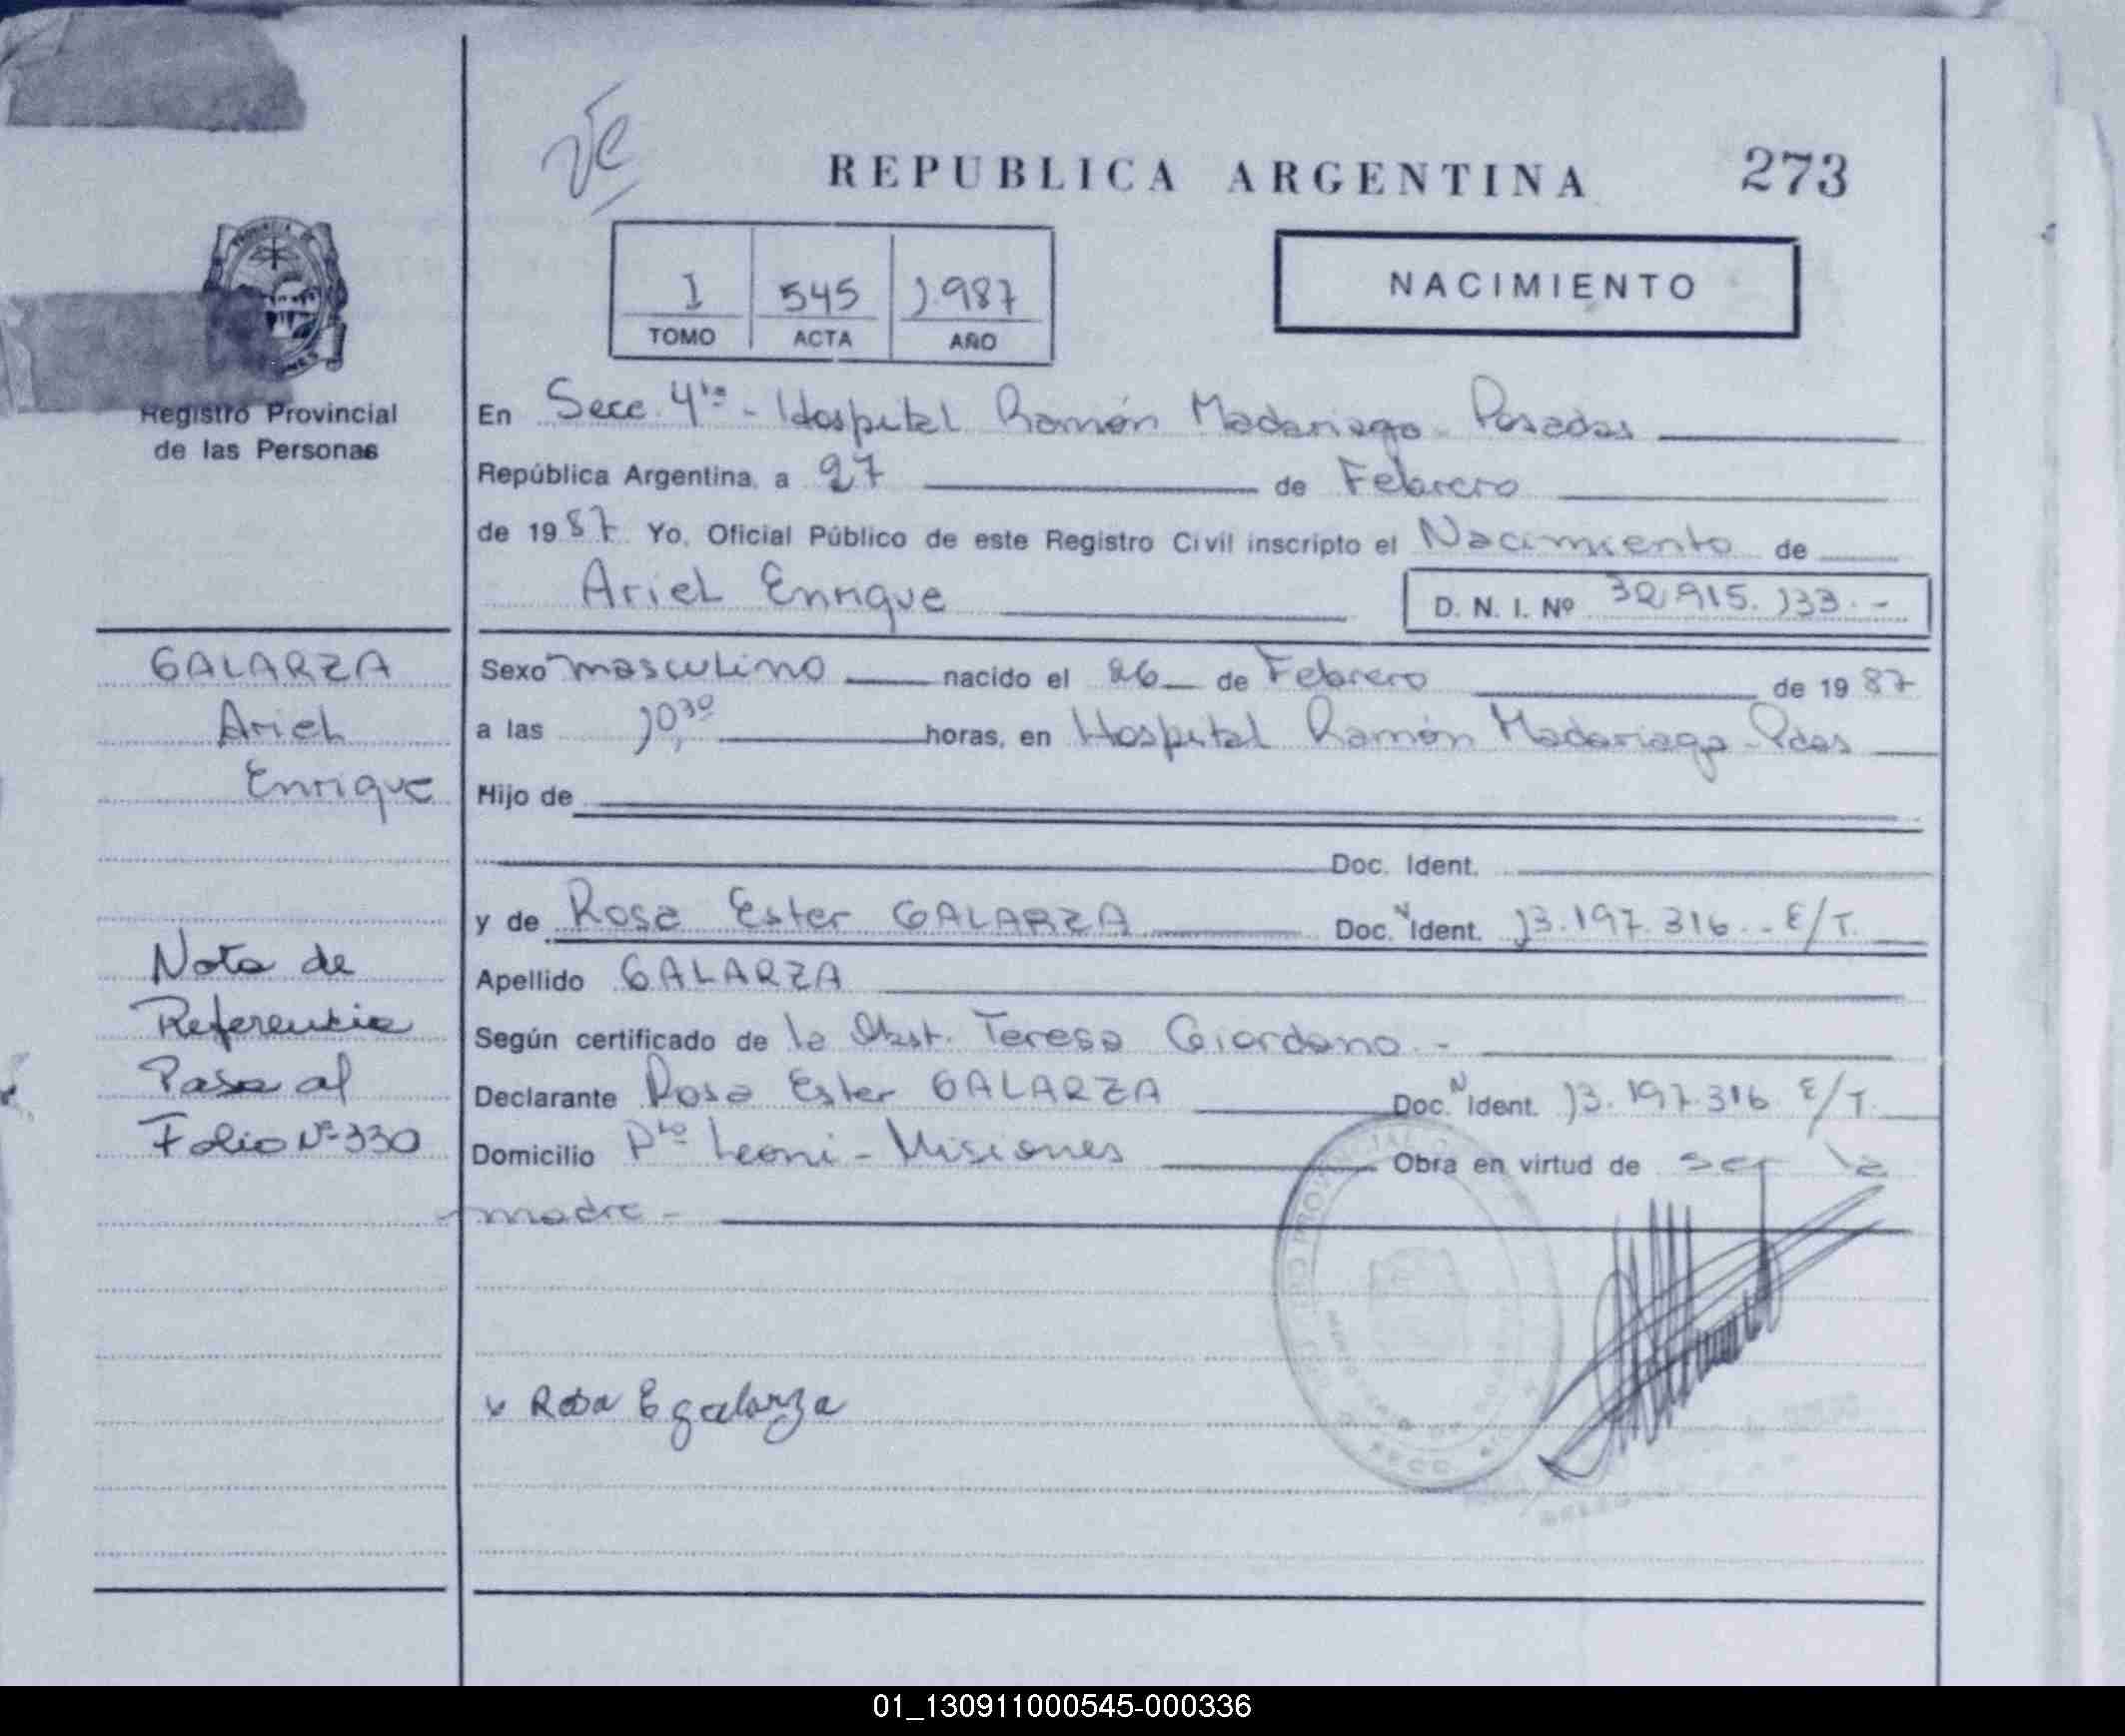 REPUBLICA ARGENTINA 273
NACIMIENTO
I 545 1.987
TOMO ACTA AÑO
Registro Provincial
de las Personas
En Secc. 4ta - Hospital Ramón Madariaga - Posadas
República Argentina, a 27 de Febrero
de 1987 Yo, Oficial Público de este Registro Civil inscripto el Nacimiento de
Ariel Enrique D. N. I. Nº 32.915.133.-
GALARZA
Ariel
Enrique
Nota de
Referencia
Pasa al
Folio Nº 330
Sexo masculino nacido el 26 de Febrero de 1987
a las 10,30 horas, en Hospital Ramón Madariaga - Pdas
Hijo de
Doc. Ident.
y de Rosa Ester GALARZA Doc. N Ident. 13.197.316 - E/T.
Apellido GALARZA
Según certificado de la Obst. Teresa Giordano.-
Declarante Rosa Ester GALARZA Doc. N Ident. 13.197.316 E/T.
Domicilio Pto Leoni - Misiones Obra en virtud de ser la
madre -
x Rosa E galarza
01_130911000545-000336